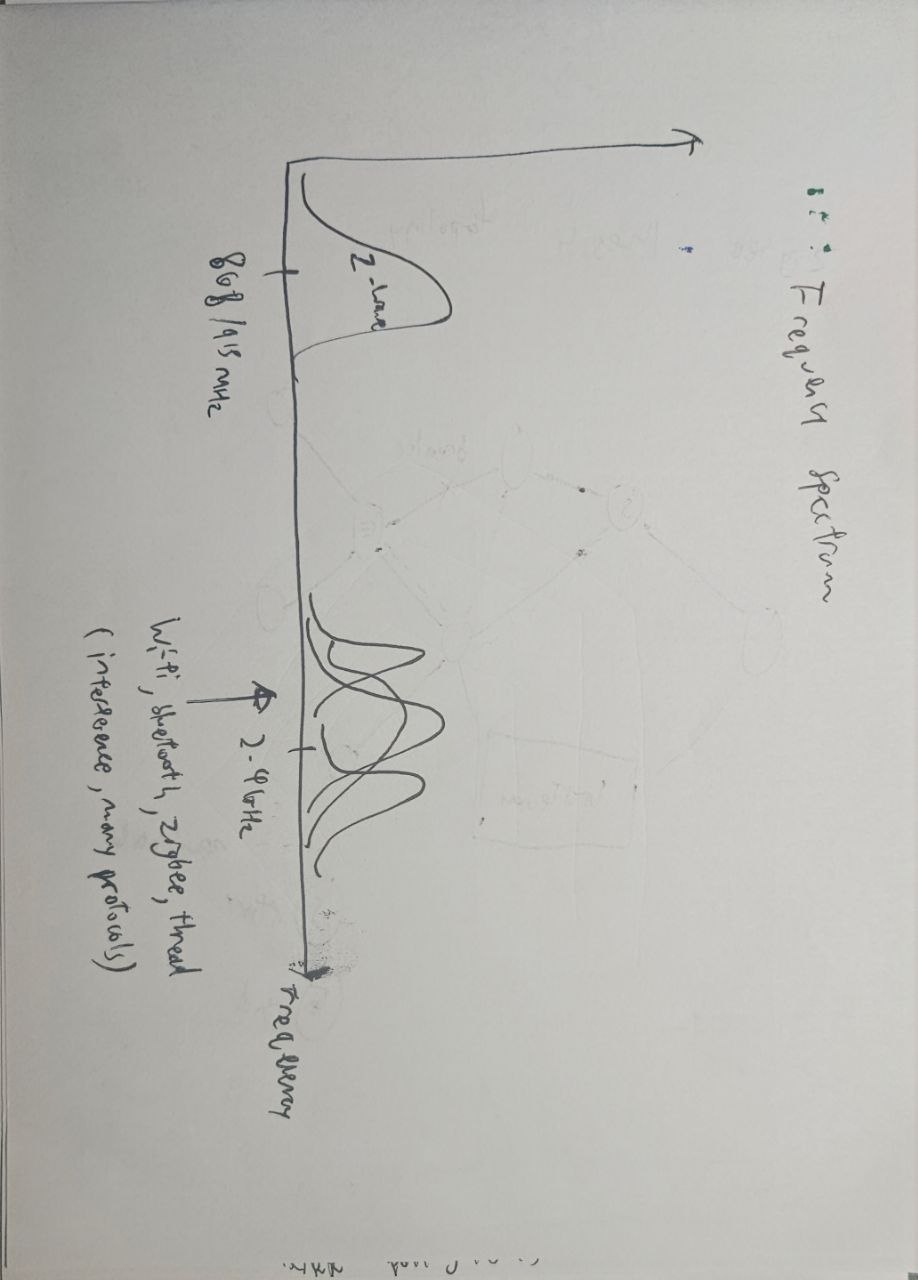 Frequency spectrum
Z-wave
868/915 MHz
2.4GHz
Frequency
Wi-Fi, bluetooth, zigbee, thread
(interference, many protocols)